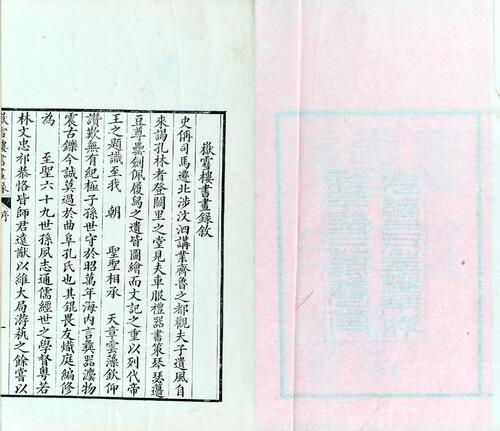 嶽雪樓書畫錄敘
史稱司馬遷北涉汶泗講業齊魯之都觀夫子遺風自
來謁孔林者登闕里之堂見夫車服禮器書策琴瑟籩
豆尊罍劍佩履舄之遺皆圖繪而文記之重以列代帝
王之題識至我　朝　聖聖相承　天章雲藻欽仰
讚歎無有紀極子孫世守於昭萬年海內言彝器瓌物
震古鑠今誠莫過於曲阜孔氏也其錕畏友熾庭編修
為　至聖六十九世孫夙志通儒經世之學督粵若
林文忠祁恭恪皆師君遠猷以維大局游蓺之餘嘗以
嶽雪樓書畫錄　序　一